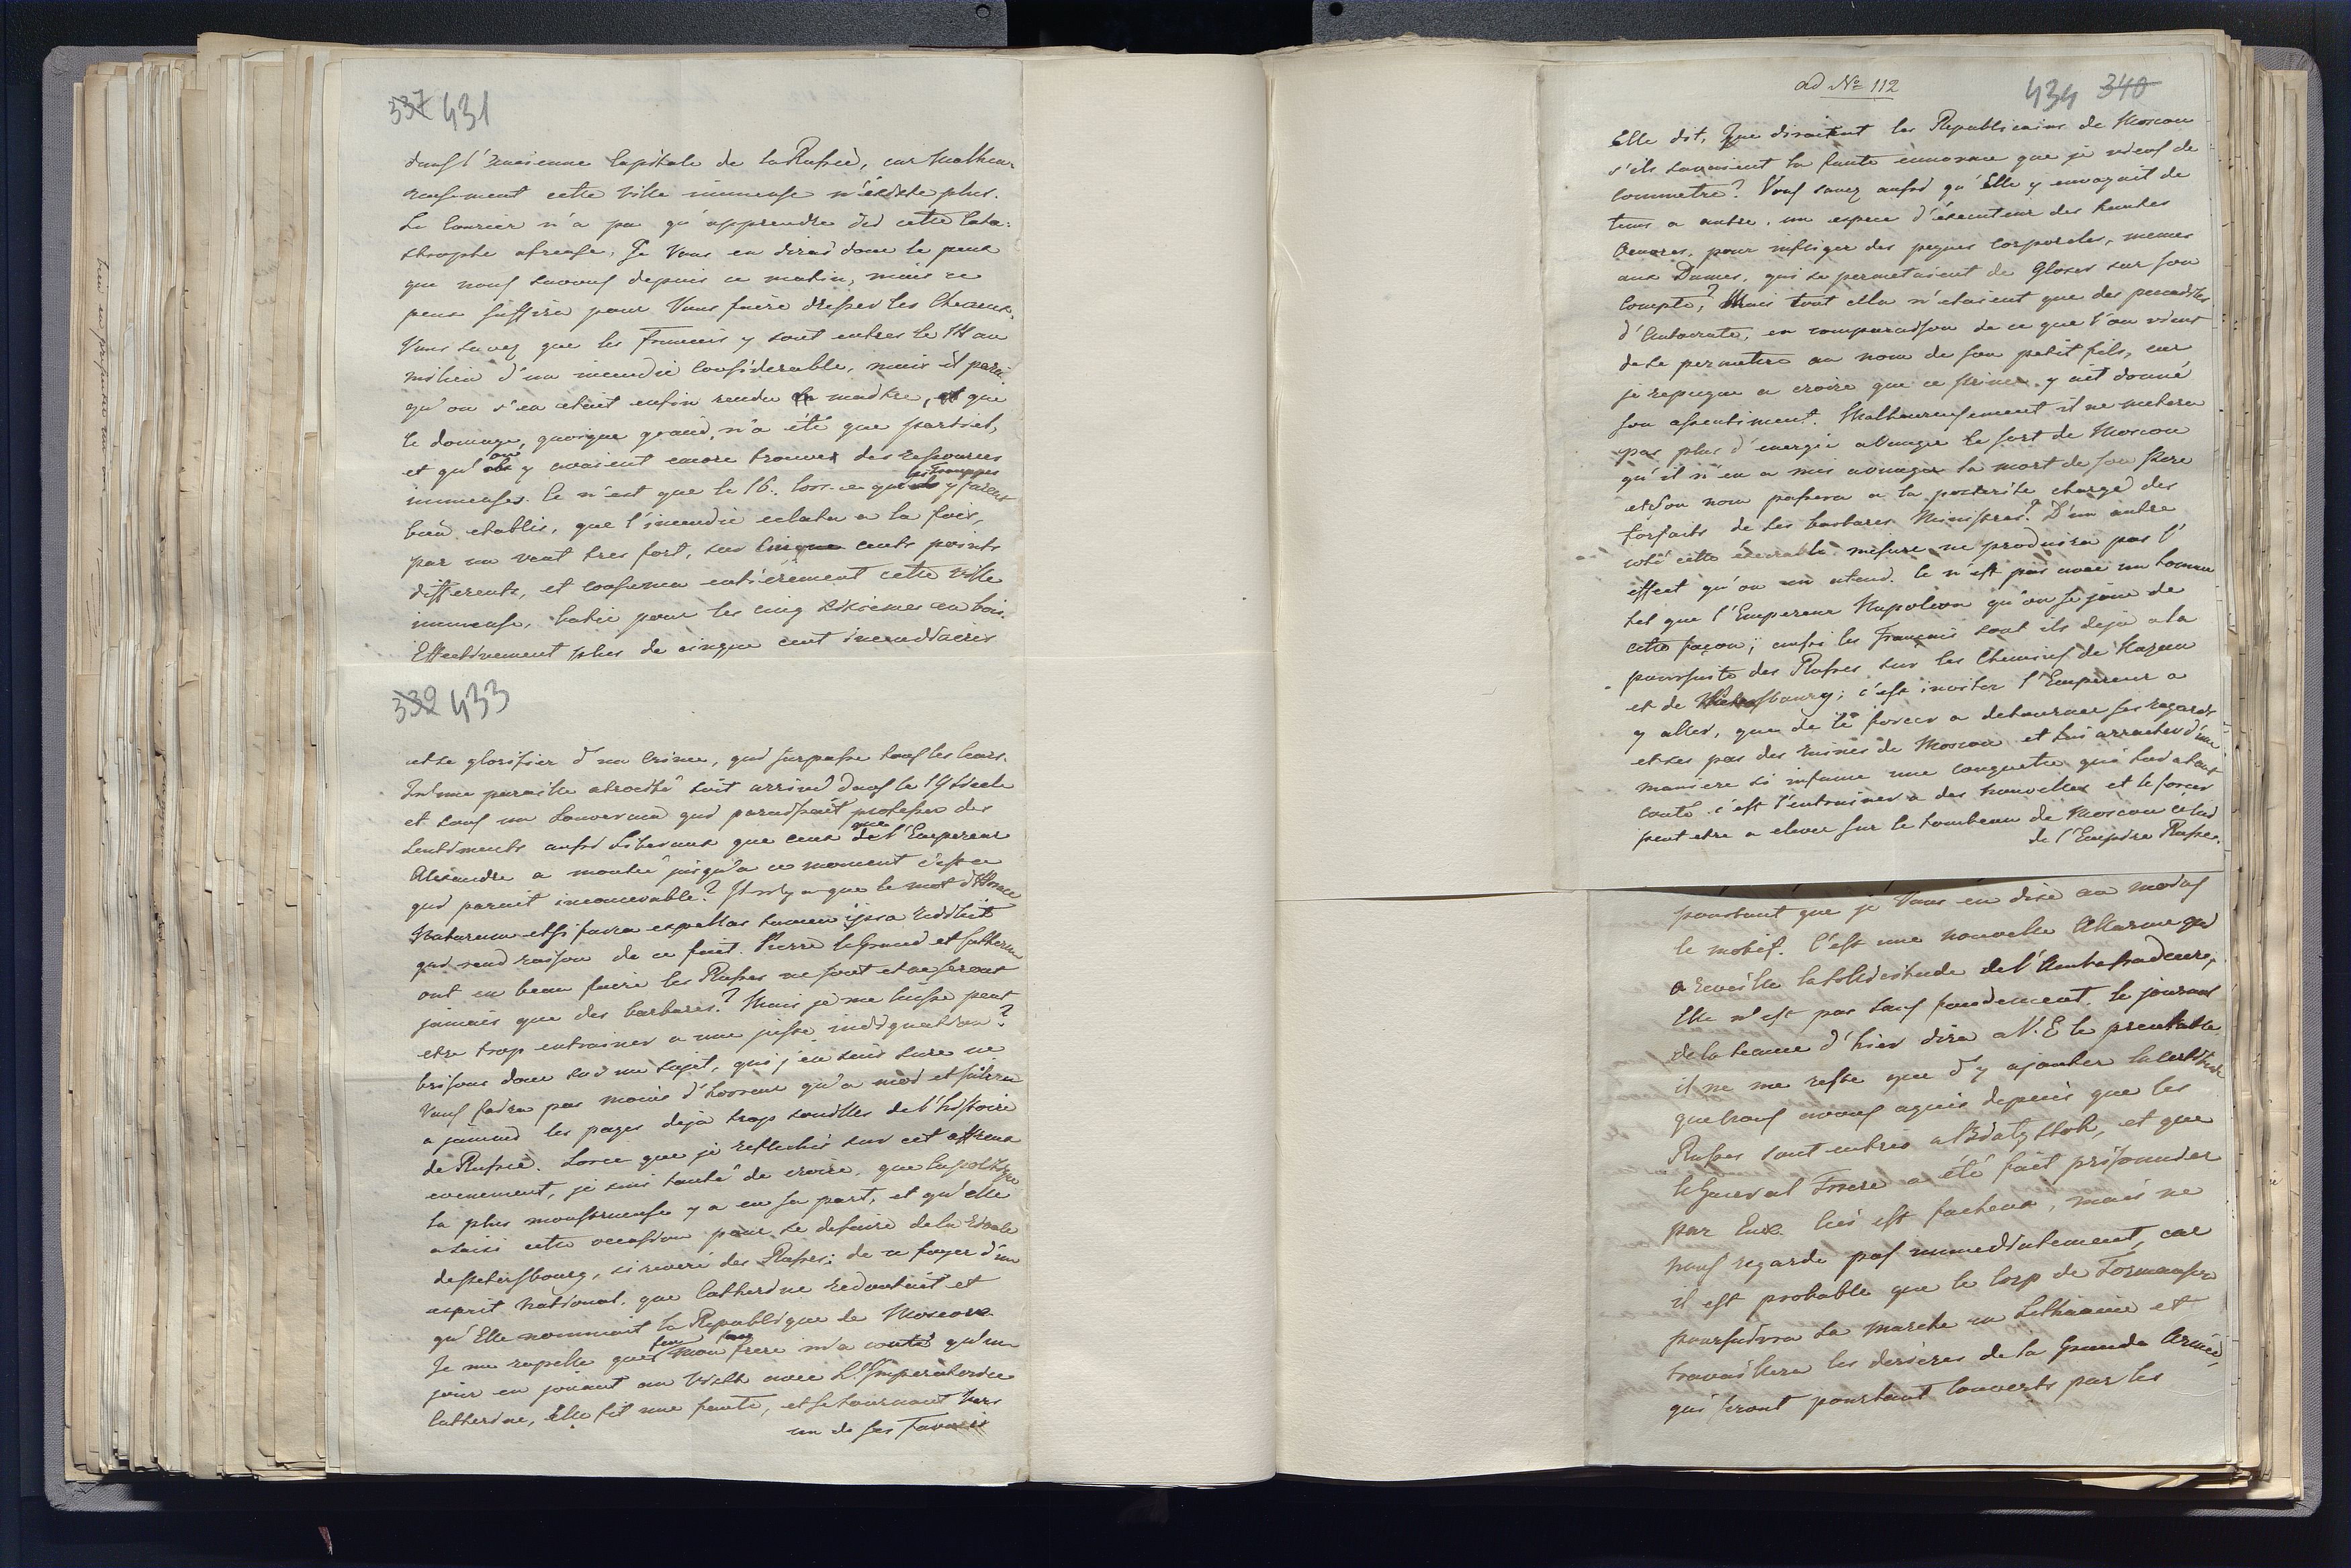 337 431
dans l'Ancienne Capitale de la Russie, car malheu-
reusement cette Ville immense n'existe plus.
Le Courier n'a pu qu'apprendre ici cette Cata:
strophe afreuse, Je Vous en dirai donc le peux
que nous savons depuis ce matin, mais ce
peux suffira pour Vous faire dresser les Cheveux.
Vous savez que les Francais y sont entres le 14 au
milieu d'un incendie Considerable, mais il parai
qu'on s'en etait enfin rendu maitre, et que
le domage, quoique grand, n'a été que partiel,
et qu'on y avaient encore trouver des ressources
immenses. Ce n'est que le 16. lors-ce que les Trouppes y furent
bien etablis, que l'incendie eclata a la fois,
par un vent tres fort, sur cinque cents points
differents, et consuma entièrement cette Ville
immense, batie pour les cinq sixiemes en bois.
Effectivement plus de cinque cent incendiaires
339 433
et se glorifier d'un Crime, qui surpasse tous les leurs.
Qu'une pareille atrocité soit arrivé dans le 19 Siecle
et sous un Souverain qui paraissait professer des
sentiments aussi Liberaux que ceux que l'Empereur
Alexandre a montré jusqu'a ce moment c'est ce
qui parait inconcevable? Il n'y a que le mot d'Horace
Naturam etsi furca expellas tamen ipsa redibit
qui rend raison de ce fait. Pierre le Grand et Catherine
ont eu beau faire les Russes ne sont et ne seront
jamais que des barbares? Mais je me laisse peut
etre trop entrainer a une juste indignation?
brisons donc sur un sujet, qui j'en suis sure ne
Vous fera pas moins d'horreur qu'a moi et salira
a jamais les pages deja trop souilles de l'histoire
de Russie. Lorce que je reflechis sur cet affreux
evenement, je suis tenté de croire, que la politique
la plus monstrueuse y a eu sa part, et qu'elle
a saisi cette occasion pour se defaire de la Rivale
de Petersbourg, si reveré des Russes; de ce foyer d'un
esprit national, que Catherine redoutait et
qu'Elle nommait la Republique de Moscou.
Je me rapelle que feu mon frere m'a conté qu'un
jour en jouant au Wisth avec L'Imperatrice
Catherine, Elle fit une faute, et se tournant vers
un de ses Favoris
ad No 112
434 340
Elle dit, Que diraient les Republicains de Moscou
s'ils savaient la faute ennorme que je viens de
commetre? Vous savez aussi qu'Elle y envoyait de
tems a autre, un espece d'executeur des hautes
Oeuvres, pour infliger des peynes corporeles, memes
aux Dames, qui se permetaient de Gloser sur son
Compte? Mais tout cella n'etaient que des peccadilles
d'Autocrate, en comparaison de ce que l'on vient
de se permetre au nom de son petit fils, car
je repugne a croire que ce prince y ait donné
son assentiment. Malheureusement il ne mettera
pas plus d'energie a Venger le sort de Moscou
qu'il n'en a mis a venger la mort de son Pere
et son nom passera a la posterité chargé des
forfaits de ses barbares Ministres? D'un autre
coté cette execrable mesure ne produira pas l'
effect qu'on en atend. Ce n'est pas avec un homme
tel que l'Empereur Napoleon qu'on se joue de
cette façon; aussi les Français sont ils deja a la
poursuite des Russes sur les Chemins de Kazan
et de Petersbourg; c'est inviter l'Empereur a
y aller, que de le forcer a detourner ses regards
et ses pas des ruines de Moscou et lui arracher d'une
maniere si infame une conquette qui lui a tant
couté. c'est l'entrainer a des nouvelles et le forcer
peut etre a elever sur le tombeau de Moscou celui
de l'Empire Russe.
pourtant que je Vous en dise au moins
le motif. C'est une nouvelle Allarme qui
a reveille la sollicitude de l'Ambassadeure,
Elle n'est pas sans fondement. Le journal
de la seance d'hier dira a V. E le prealable
il ne me reste que d'y ajouter la certitude
que nous avons aquis depuis que les
Russes sont entrés a Bialystok, et que
le General Frere a été fait prisonnier
par Eux. Ceci est facheux, mais ne
nous regarde pas immediatement, car
il est probable que le Corp de Tormansov
poursuivra sa marche en Lithuanie et
travaillera les derieres de la Grande Armée,
qui seront pourtant couverts par les